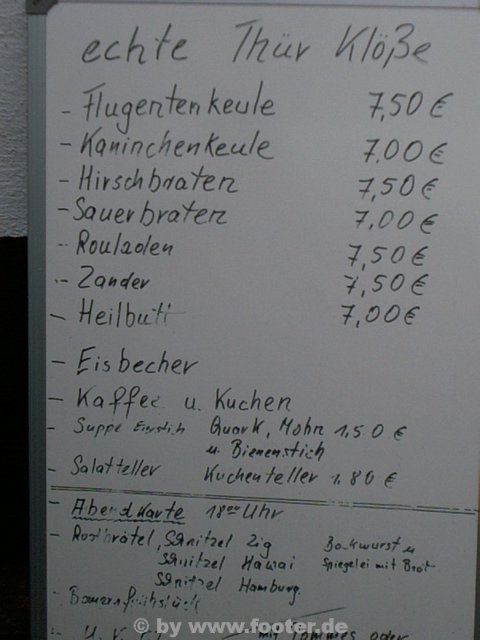 echte Thür Klöße
- Flugentenkeule 7,50 €
- Kaninchenkeule 7,00 €
- Hirschbraten 7,50 €
- Sauerbraten 7,00 €
- Rouladen 7,50 €
- Zander 7,50 €
- Heilbutt 7,00 €
- Eisbecher
- Kaffee u. Kuchen
- Suppe Quark, Mohn 1,50 €
u. Bienenstich
- Salatteller Kuchenteller 1,80 €
- Abendkarte 18⁰⁰ Uhr
- Rostbrätel, Schnitzel Zig Bockwurst u
Schnitzel Hawai Spiegelei mit Brot
Schnitzel Hamburg.
- Bauernfrühstück
mit Pommes oder
© by www.footer.de